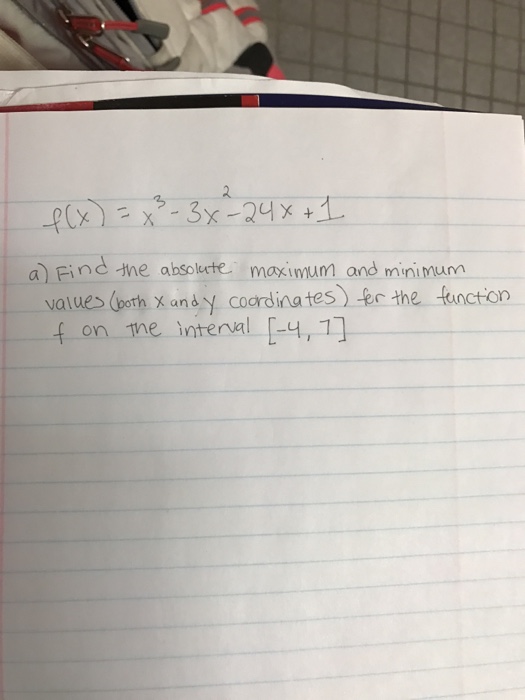 f(x) = x³ - 3x² - 24x + 1
a) Find the absolute maximum and minimum
values (both x and y coordinates) for the function
f on the interval [-4, 7]